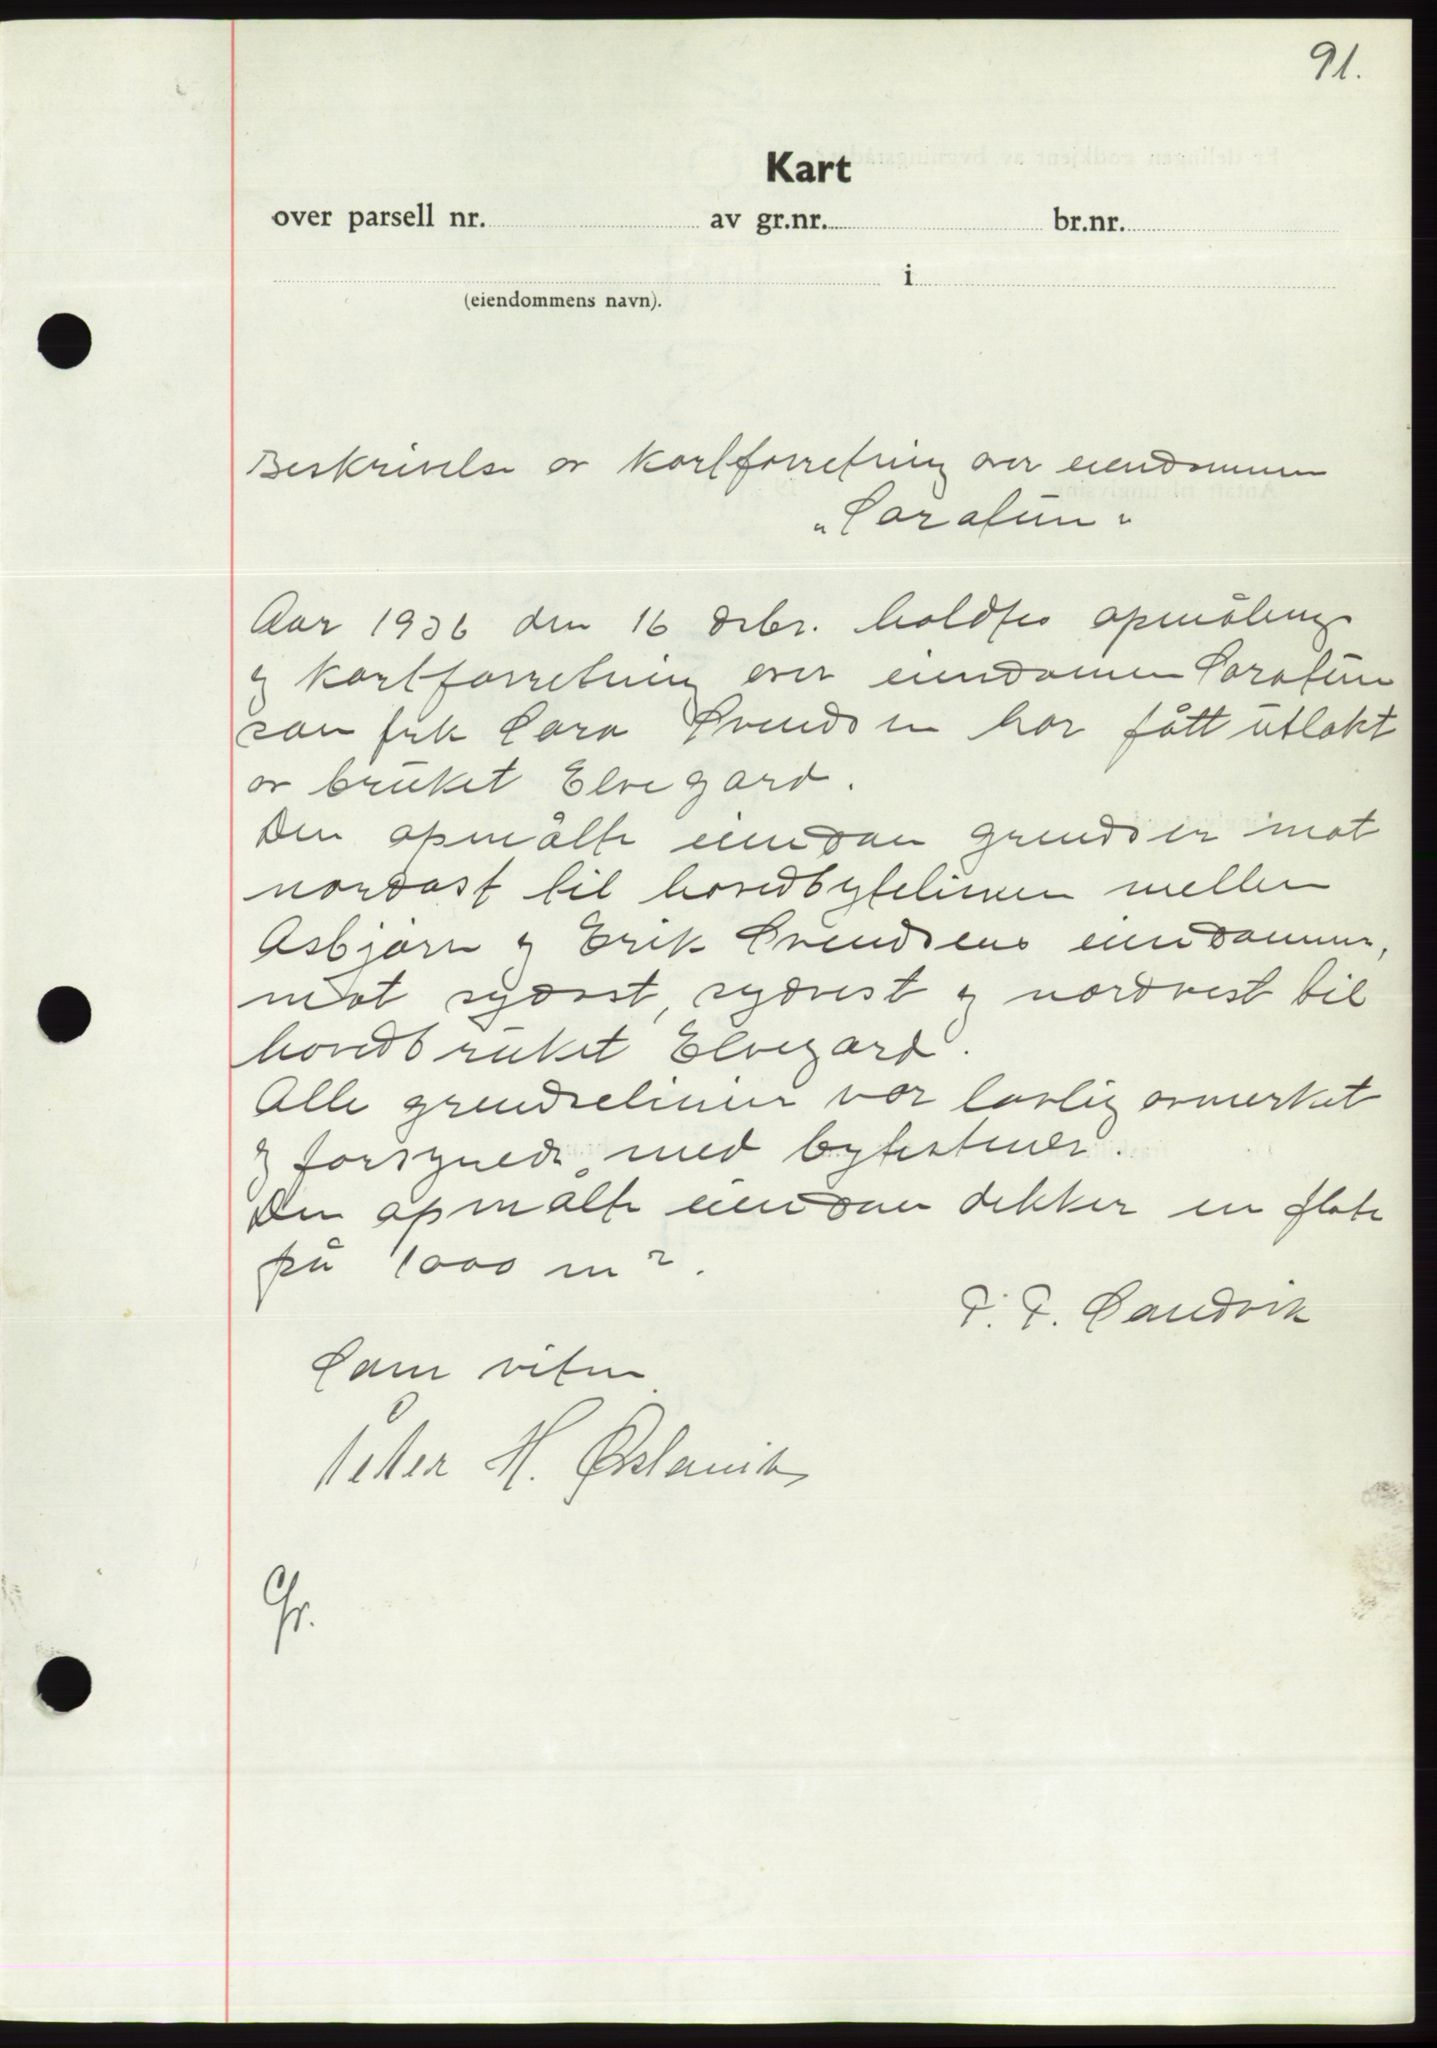 91.
Kart
over parsell nr. av gr.nr. br.nr.
i
(eiendommens navn).
Beskrivelse av kartforretning over eiendommen
"Saratun"
Aar 1936 den 16 debr. holdtes opmålings
og kartforretning over eiendomen Saratun
som frk Sara Svendsen har fått utlakt
av bruket Elvegard.
Den opmålte eiendom grendser mot
nordost til hovedbytelinien mellem
Asbjørn og Erik Svendsens eiendommer,
mot sydost, sydvest og nordvest til
hovedbruket Elvegard.
Alle grendselinier var lovlig avmerket
og forsynede med bytestener.
Den opmålte eiendom dekker en flate
på 1000 m².
Sandvik
Som vitne
Peter H.